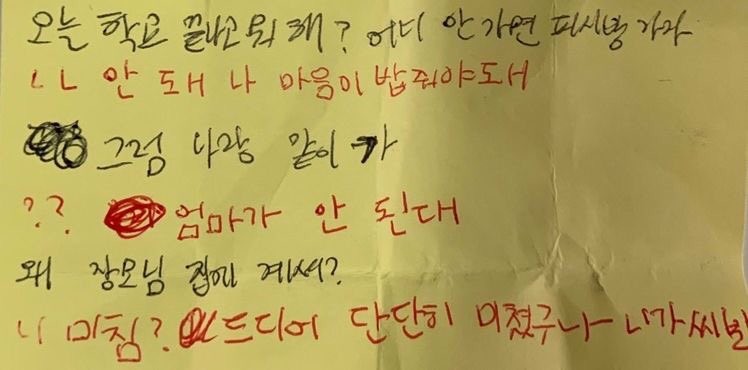 오늘 학교 끝나고 뭐 해? 어디 안 가면 피시방 가자
ㄴㄴ 안 돼 나 마음이 밥 줘야 돼
그럼 나랑 같이 가
?? 엄마가 안 된대
왜 장모님 집에 계셔?
니 미침? 드디어 단단히 미쳤구나 니가 씨빌